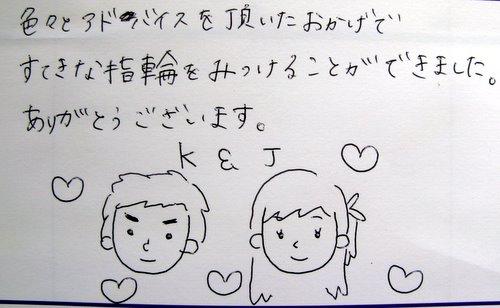 色々とアドバイスを頂いたおかげで
すてきな指輪をみつけることができました。
ありがとうございます。
K & J